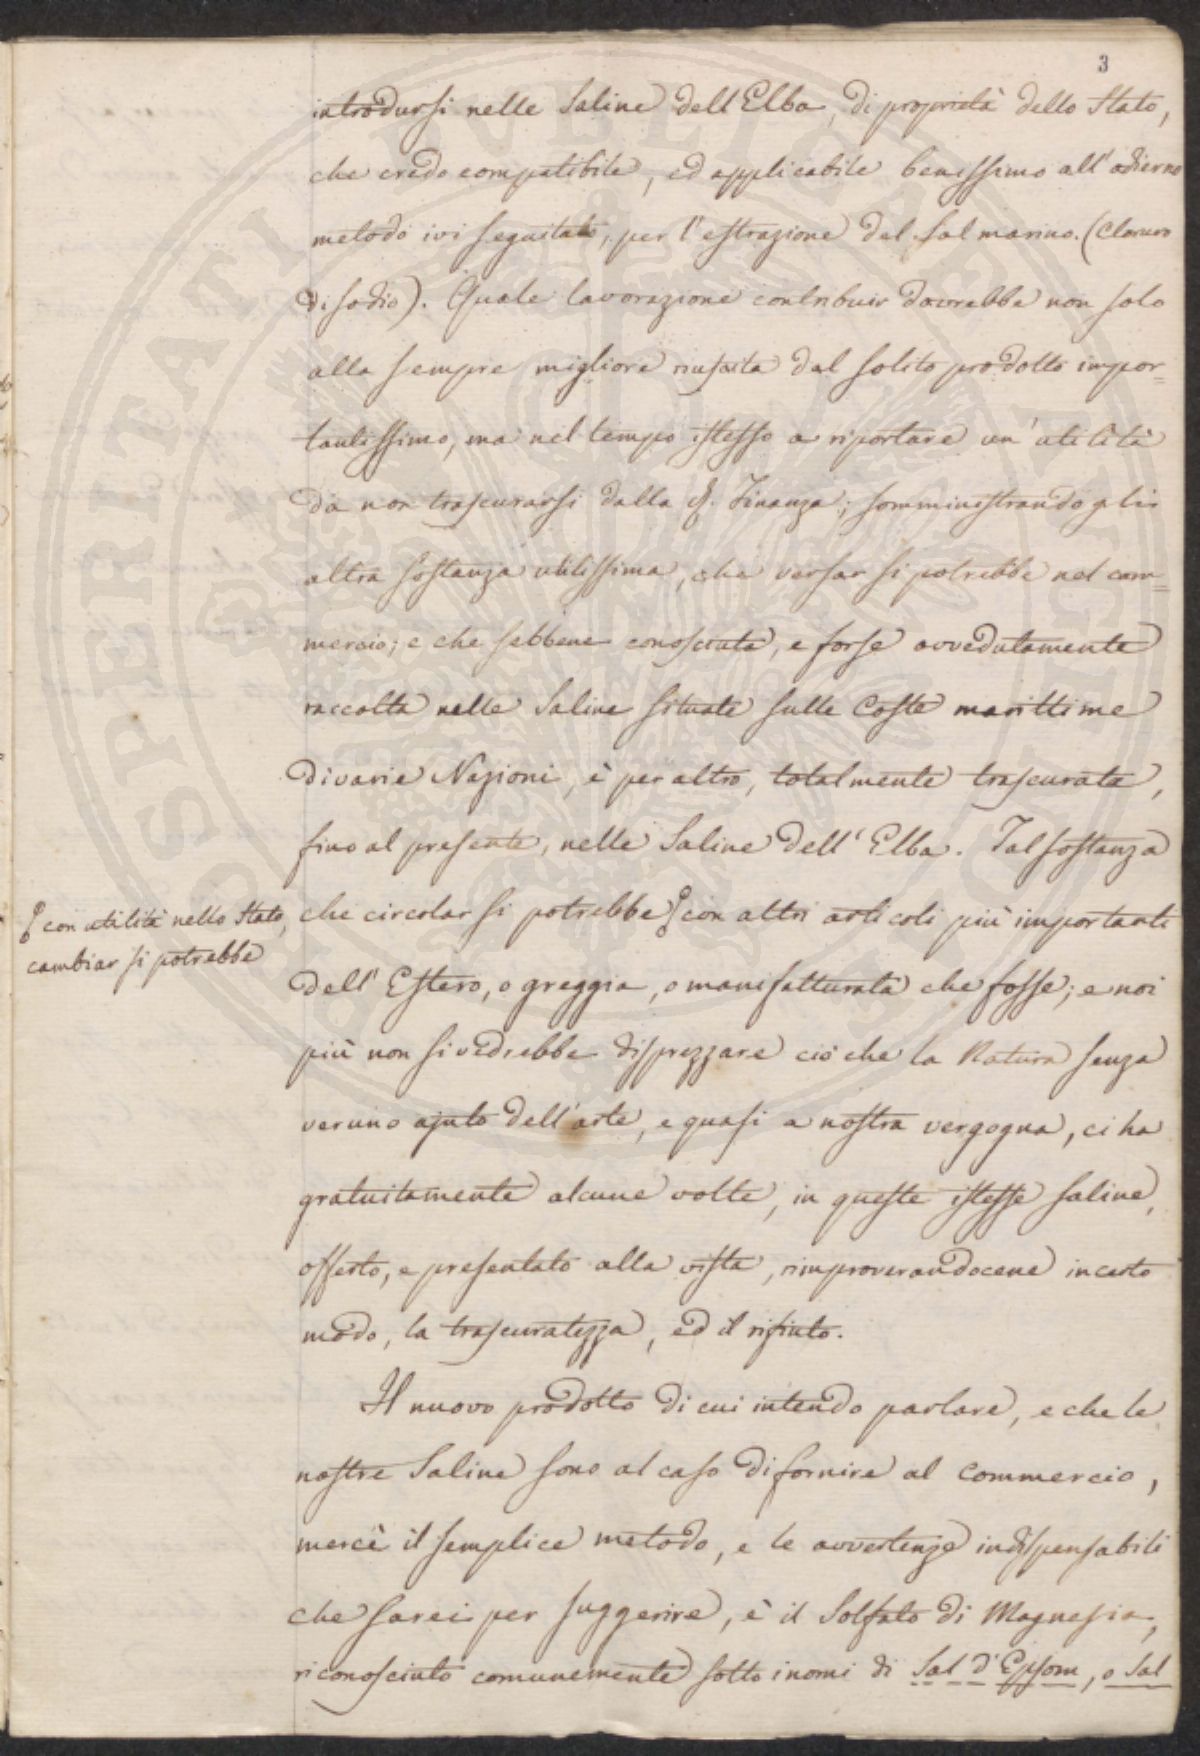 3
introdursi nelle Saline dell'Elba, di proprietà dello Stato,
che credo compatibile, ed applicabile benissimo all'odierno
metodo ivi seguitato, per l'estrazione del sal marino. (Cloruro
di sodio). Quale lavorazione contribuir dovrebbe non solo
alla sempre migliore riuscita del solito prodotto impor=
tantissimo, ma nel tempo istesso a riportare un'utilità
da non trascurarsi dalla R. Finanza; somministrandogli
altra sostanza utilissima, che versar si potrebbe nel com=
mercio; e che sebbene conosciuta, e forse avvedutamente
raccolta nelle Saline situate sulle Coste marittime
di varie Nazioni, è per altro, totalmente trascurata,
fino al presente, nelle Saline dell'Elba. Tal sostanza
che circolar si potrebbe con altri articoli più importanti
con utilità nello Stato,
cambiar si potrebbe
dell'Estero, o greggia, o manifatturata che fosse; e noi
più non si vedrebbe disprezzare ciò che la Natura senza
veruno ajuto dell'arte, e quasi a nostra vergogna, ci ha
gratuitamente alcune volte, in queste istesse saline,
offerto, e presentato alla vista, rimproverandocene in certo
modo, la trascuratezza, ed il rifiuto.
Il nuovo prodotto di cui intendo parlare, e che le
nostre Saline sono al caso di fornire al commercio,
mercè il semplice metodo, e le avvertenze indispensabili
che sarei per suggerire, è il Solfato di Magnesia,
riconosciuto comunemente sotto i nomi di Sal d'Epsom, o Sal
PROSPERITATI PUBLICAE AUGENDAE